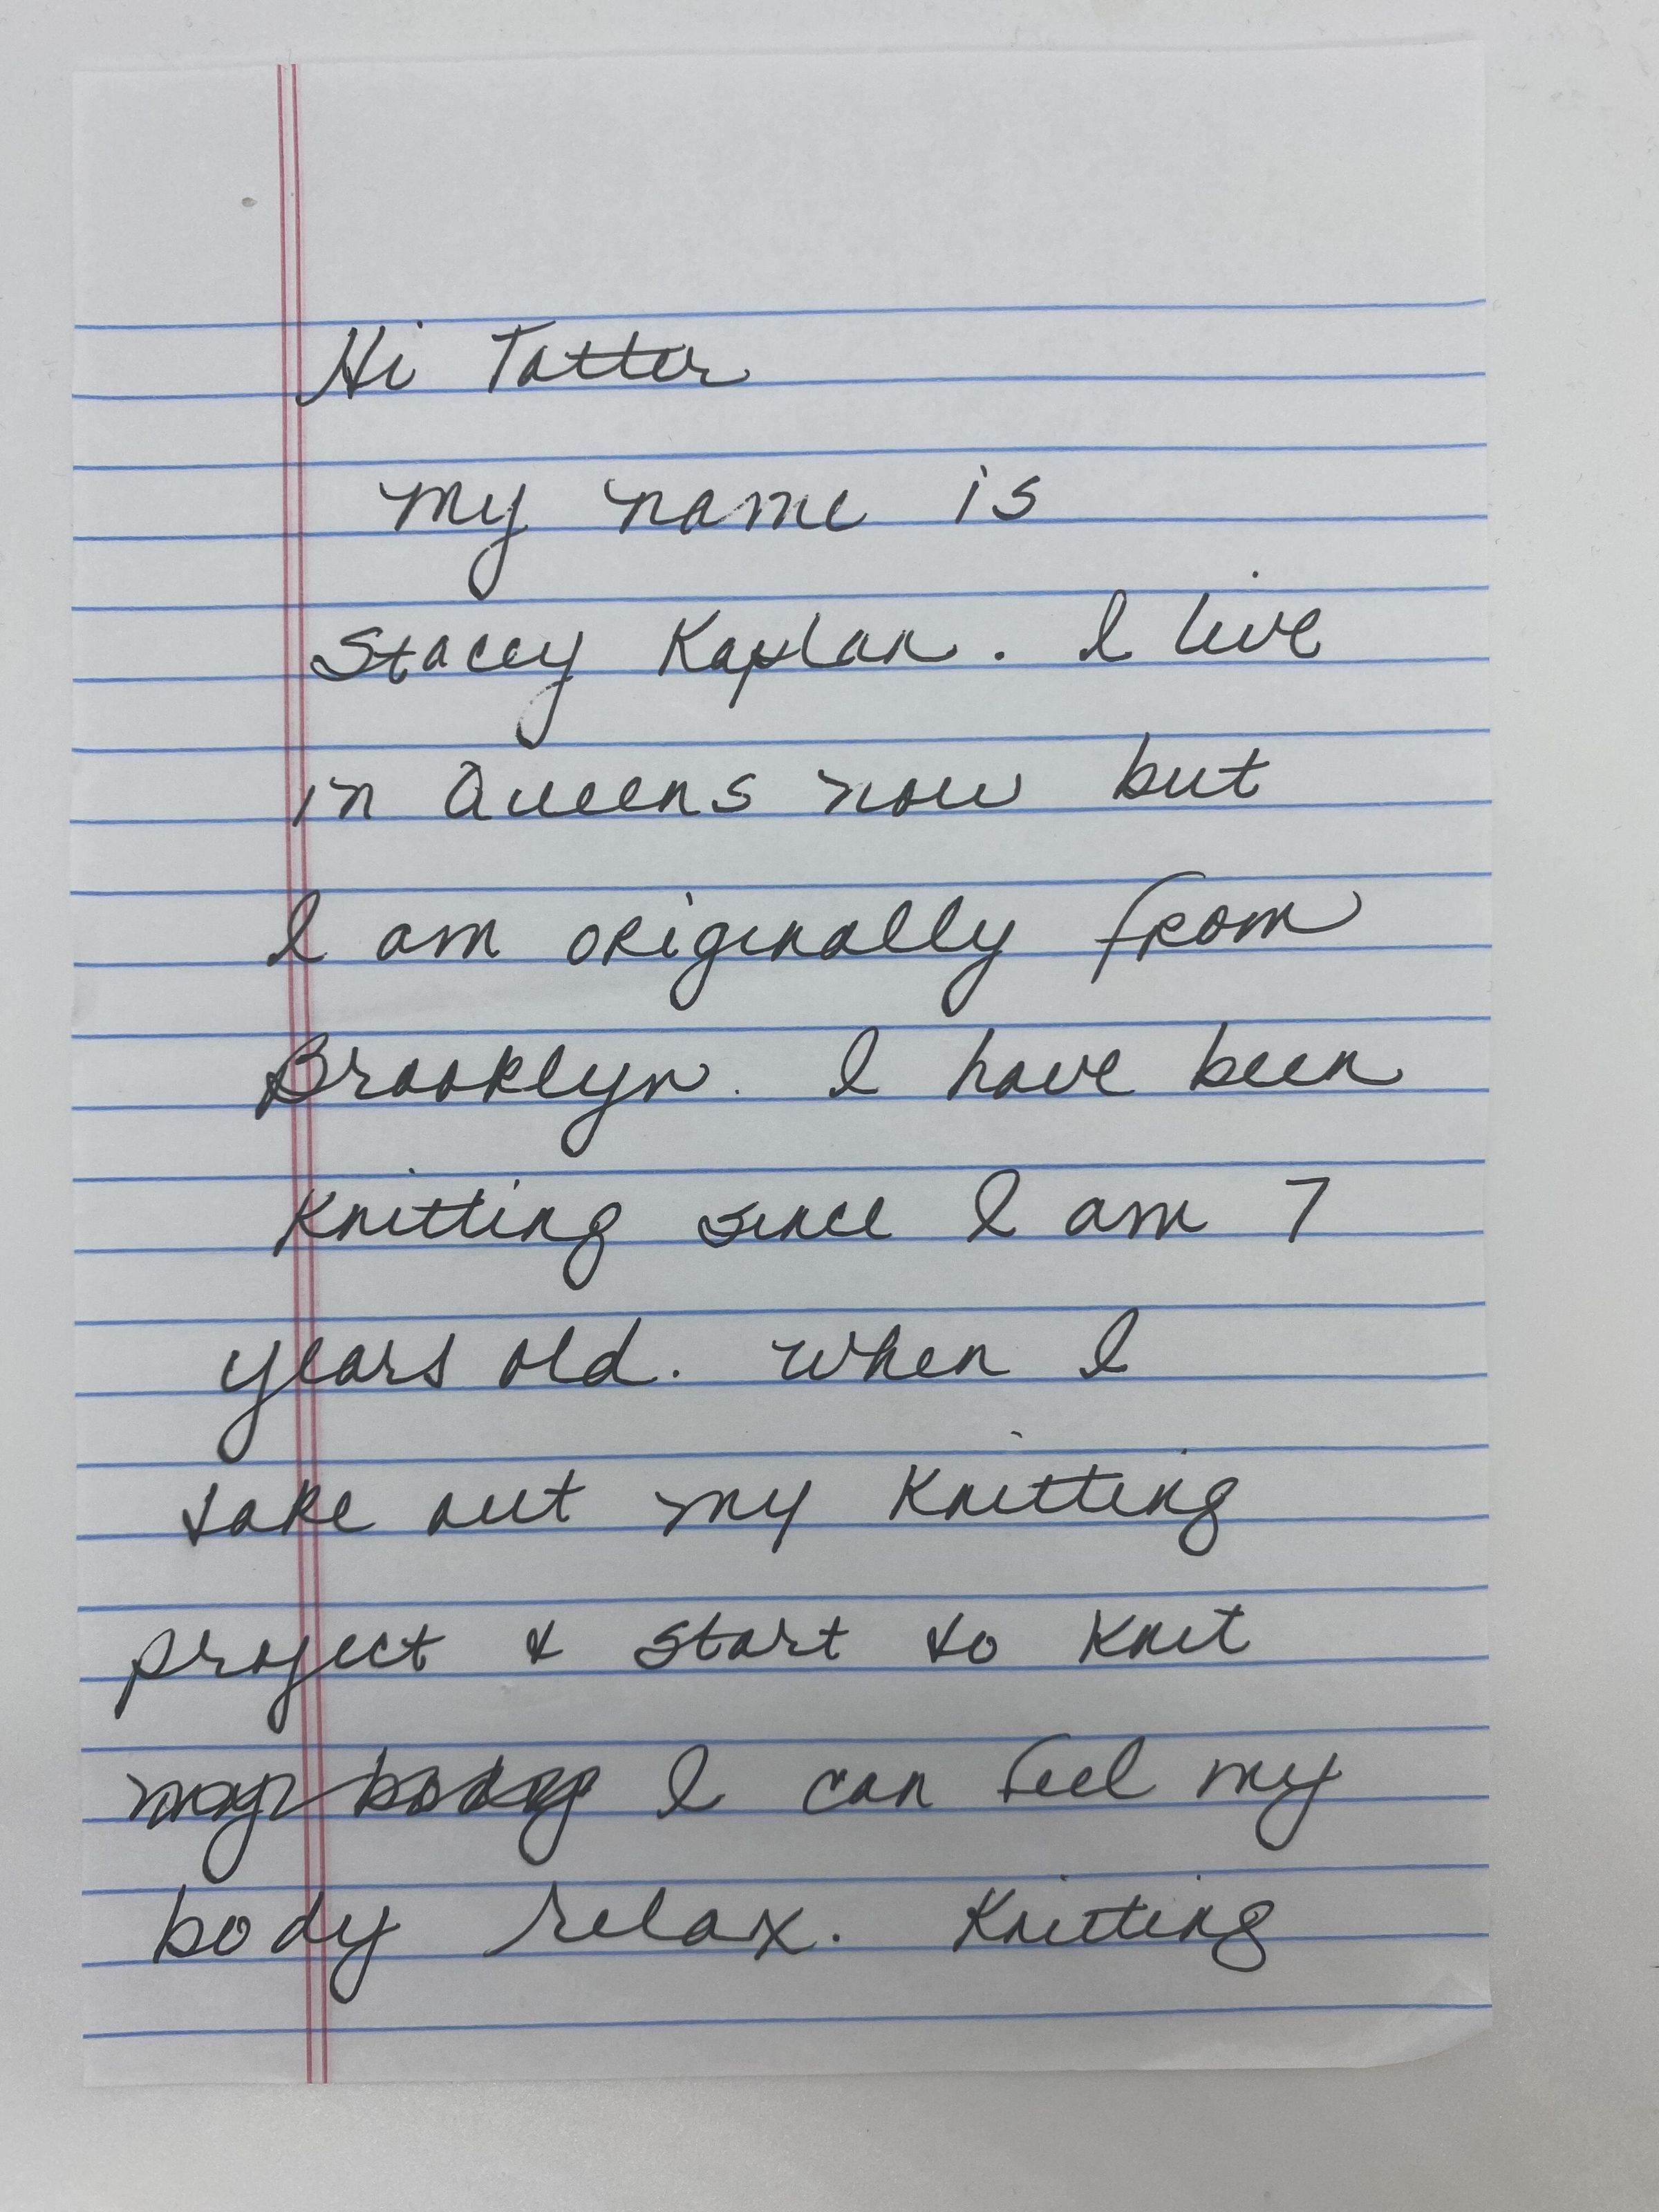 Hi Tatter
my name is
Stacey Kaplan. I live
in Queens now but
I am originally from
Brooklyn. I have been
Knitting since I am 7
years old. When I
take out my Knitting
project & start to Knit
my body I can feel my
body relax. Knitting